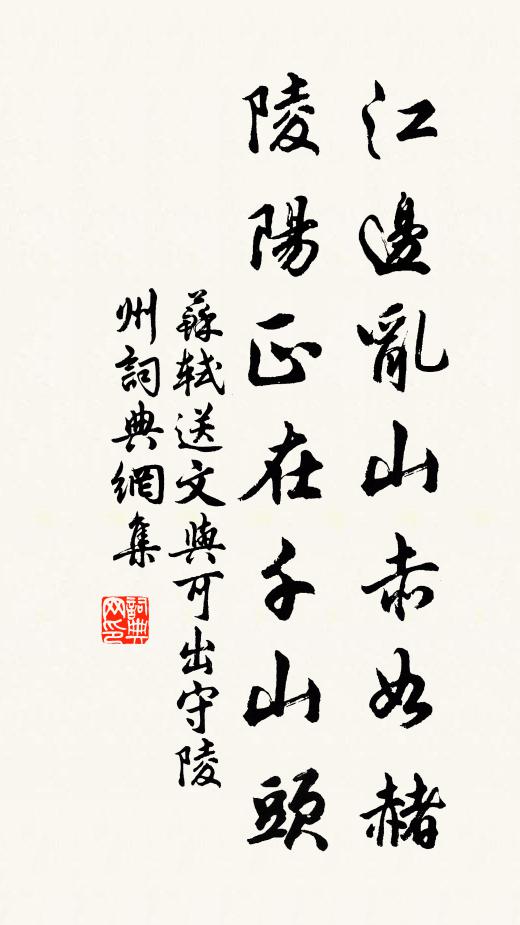 江邊亂山赤如赭
陵陽正在千山頭
蘇軾送文與可出守陵
州詞典網集
詞典网印